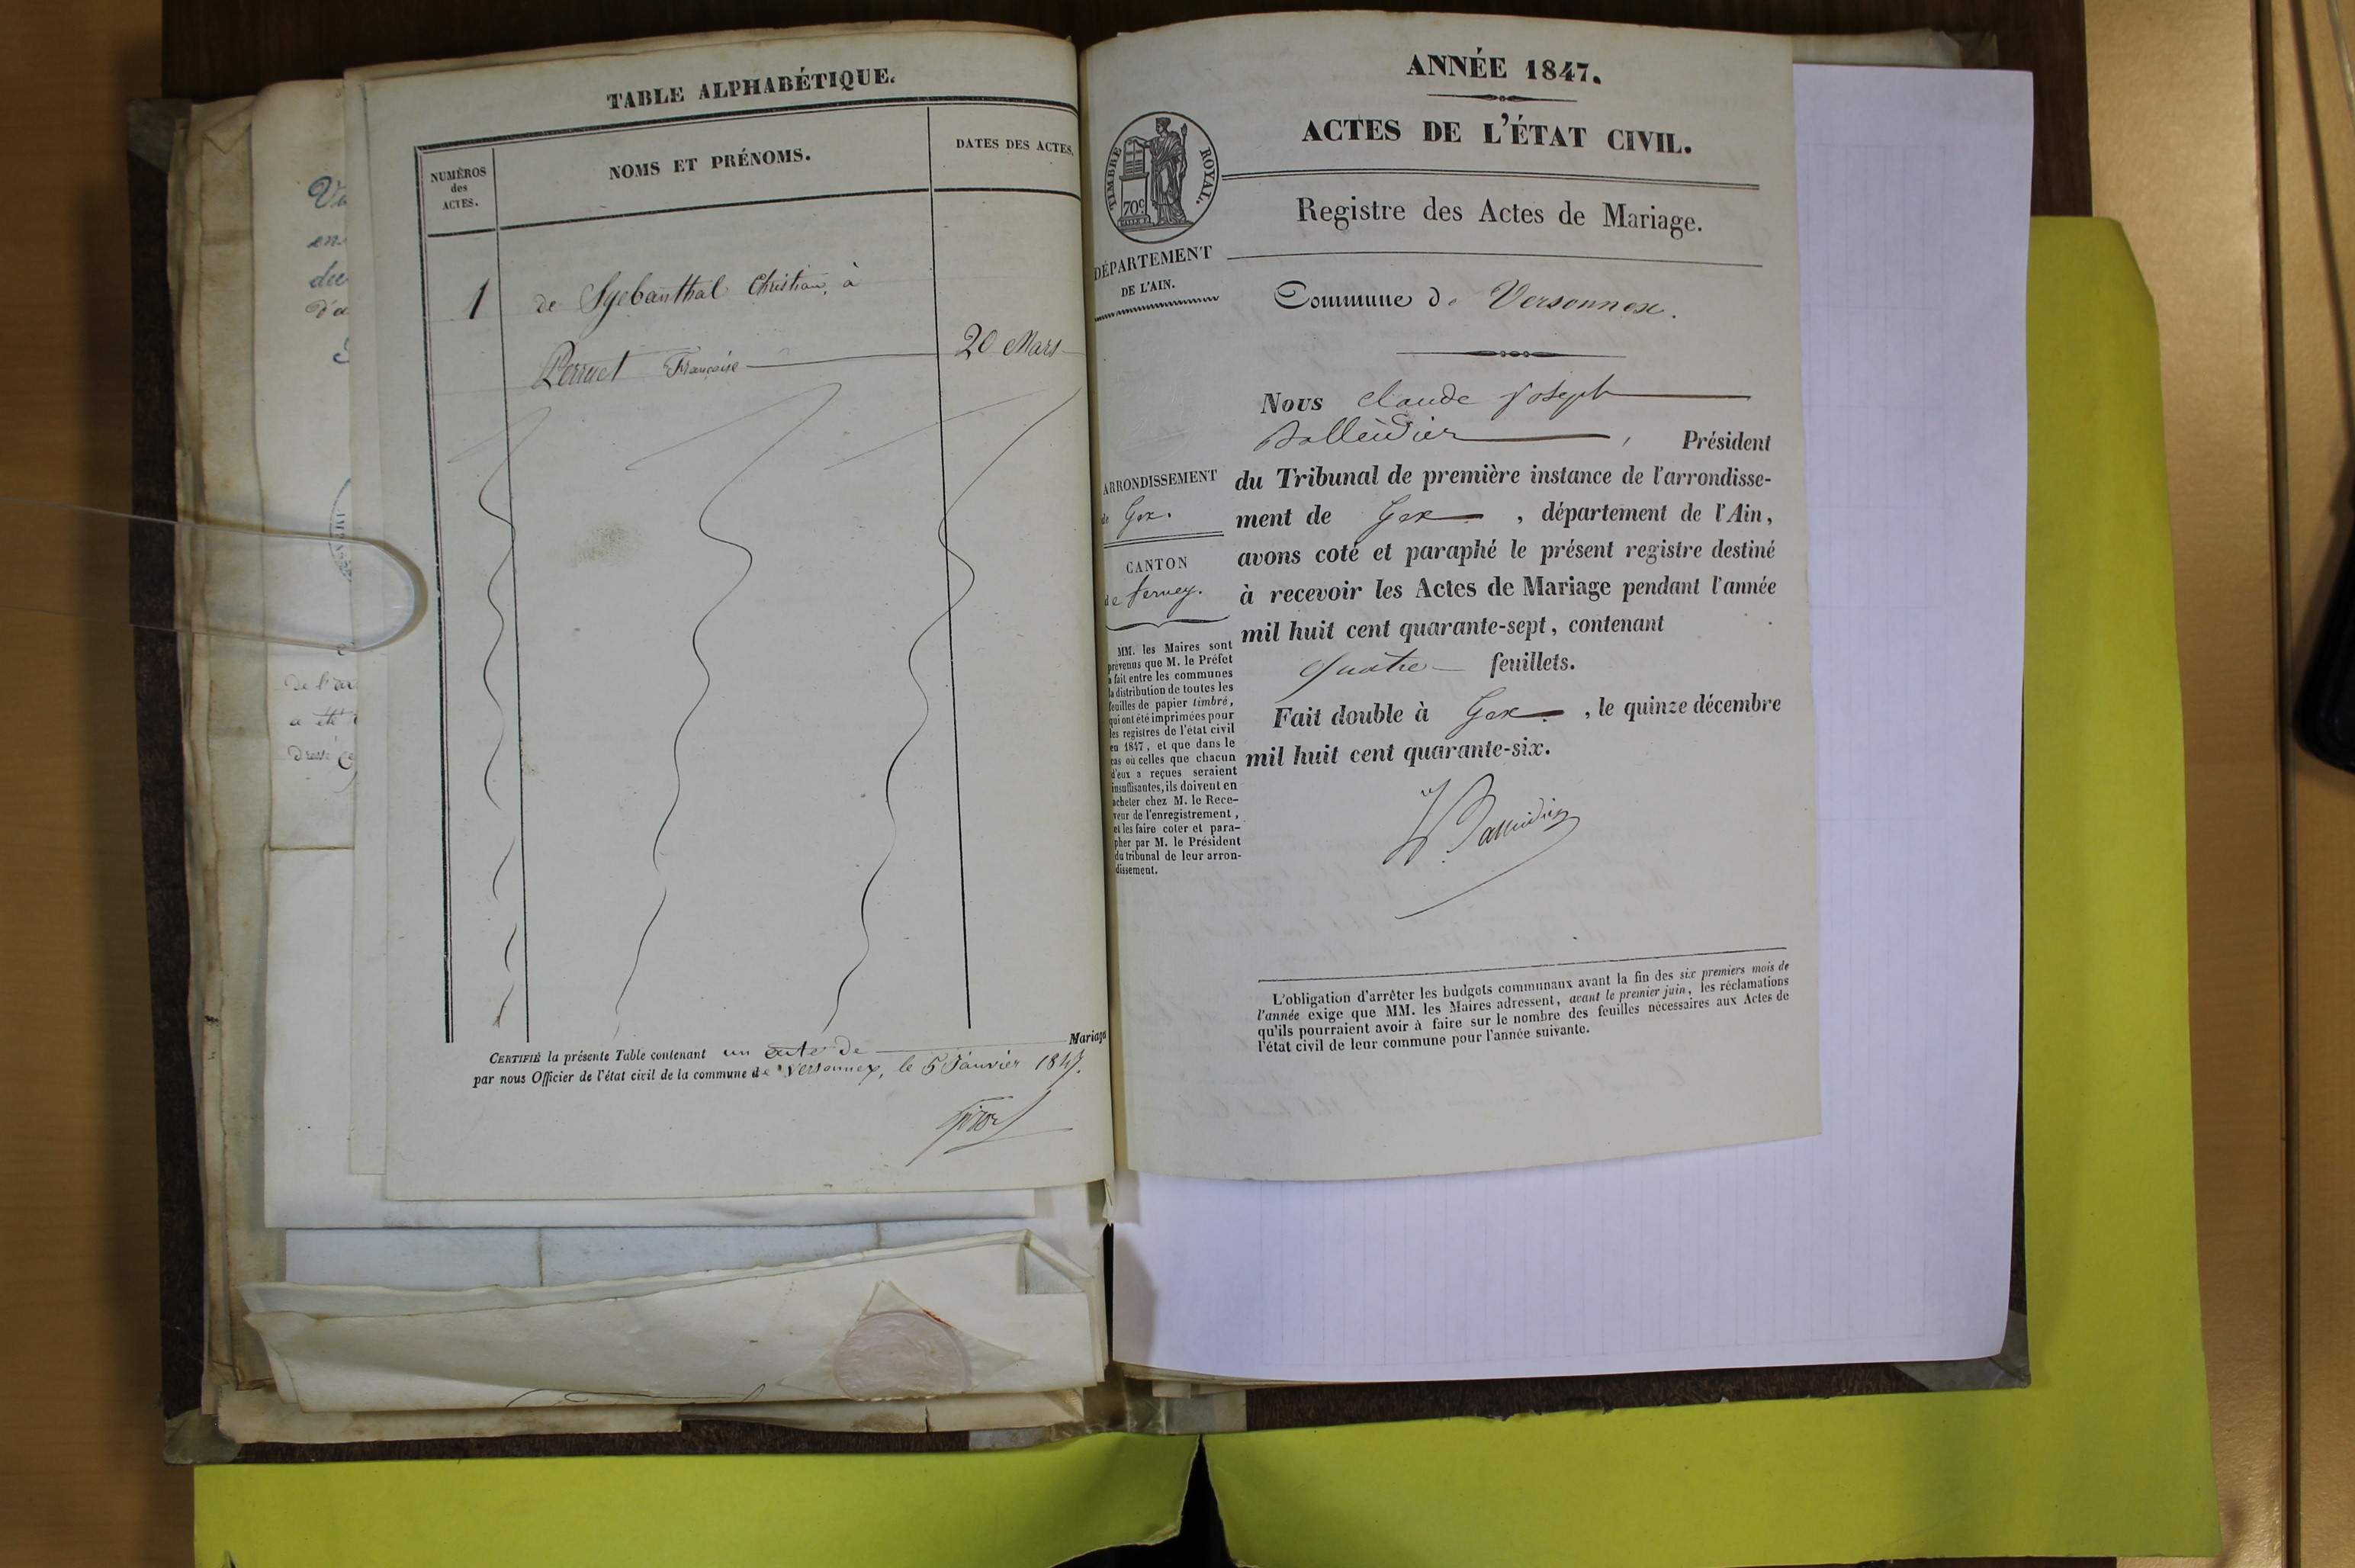 TABLE ALPHABÉTIQUE.
NUMÉROS
des
ACTES.
NOMS ET PRÉNOMS.
DATES DES ACTES.
1
de Sybanthal Christian, à
Perruet Françoise
20 Mars
CERTIFIÉ la présente Table contenant un acte de Mariage
par nous Officier de l'état civil de la commune de Versonnex, le 5 Janvier 1847.
ANNÉE 1847.
ACTES DE L'ÉTAT CIVIL.
TIMBRE ROYAL.
70c
Registre des Actes de Mariage.
DÉPARTEMENT
DE L'AIN.
Commune de Versonnex.
Nous Claude Joseph
Balleidier, Président
du Tribunal de première instance de l'arrondisse-
ment de Gex, département de l'Ain,
avons coté et paraphé le présent registre destiné
à recevoir les Actes de Mariage pendant l'année
mil huit cent quarante-sept, contenant
quatre feuillets.
Fait double à Gex, le quinze décembre
mil huit cent quarante-six.
ARRONDISSEMENT
de Gex.
CANTON
de ferney.
MM. les Maires sont
prévenus que M. le Préfet
a fait entre les communes
la distribution de toutes les
feuilles de papier timbré,
qui ont été imprimées pour
les registres de l'état civil
en 1847, et que dans le
cas où celles que chacun
d'eux a reçues seraient
insuffisantes, ils doivent en
acheter chez M. le Rece-
veur de l'enregistrement,
et les faire coter et para-
pher par M. le Président
du tribunal de leur arron-
dissement.
L'obligation d'arrêter les budgets communaux avant la fin des six premiers mois de
l'année exige que MM. les Maires adressent, avant le premier juin, les réclamations
qu'ils pourraient avoir à faire sur le nombre des feuilles nécessaires aux Actes de
l'état civil de leur commune pour l'année suivante.